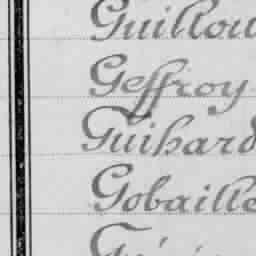 Guillou
Geffroy
Guihard
Gobaille